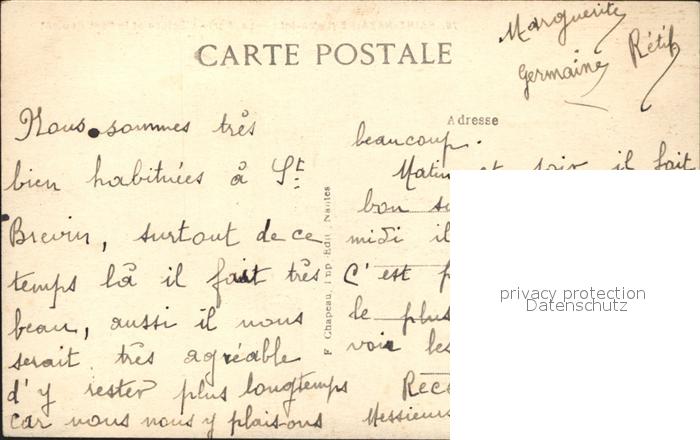 CARTE POSTALE
Marguerite
Germaine Rétif
Adresse
Nous sommes très
bien habituées à St
Brevin, surtout de ce
temps là il fait très
beau, aussi il nous
serait très agréable
d'y rester plus longtemps
car nous nous y plaisons
F. Chapeau, Imp.-Edit., Nantes
beaucoup.
Matin et soir il fait
bon
midi il
C'est
le plus
voir les
Messieurs
privacy protection
Datenschutz